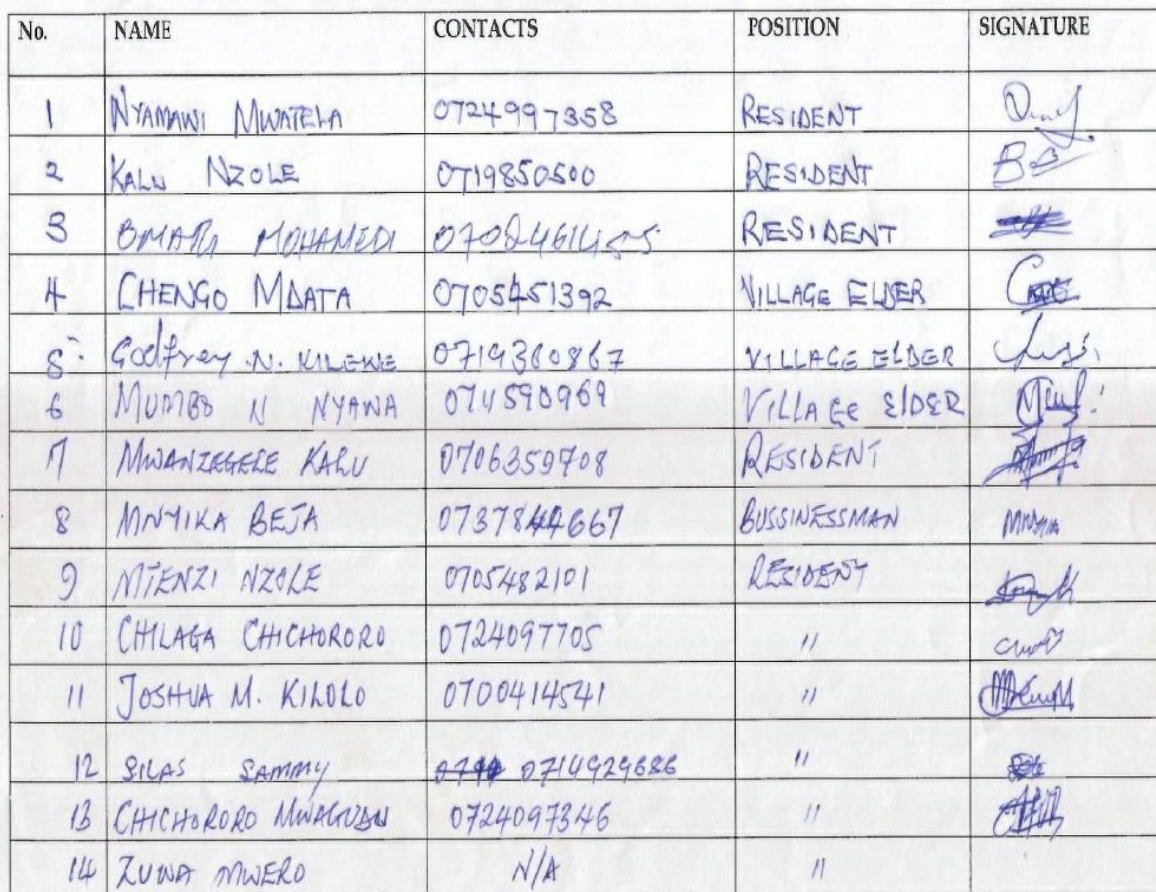 No. NAME CONTACTS POSITION SIGNATURE
1 NYAMAWI MWATELA 0724997358 RESIDENT
2 KALU NZOLE 0719850500 RESIDENT
3 OMARI MOHAMEDI RESIDENT
4 CHENGO MDATA 0705451392 VILLAGE ELDER
5 Godfrey N. KILEWE 0719360867 VILLAGE ELDER
6 MUMBO N NYAWA 0714590969 VILLAGE ElDER
7 MWANZEGELE KALU 0706359708 RESIDENT
8 MNYIKA BEJA 0737844667 BUSSINESSMAN
9 MTENZI NZOLE 0705482101 RESIDENT
10 CHILAGA CHICHORORO 0724097705 "
11 JOSHUA M. KILOLO 0700414541 "
12 SILAS SAMMY 0714929686 "
13 CHICHORORO 0724097346 "
14 ZUWA MWERO N/A "